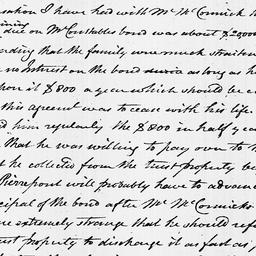 sation I have had with Mr McCormick
due on McCuntables bond was about $2,000
nding that the family were much straiten
no Interest on the bond as long as he
pon it $800 a year which should be
this agreement was to cease with his life.
d him regularly the $800 in half year
that he was willing to pay over to
t he collected from the trust property
Pierrepont will probably have to advance
cipal of the bond after Mr McCormicks
re extremely strange that he should ref
ust property to discharge it as fast as